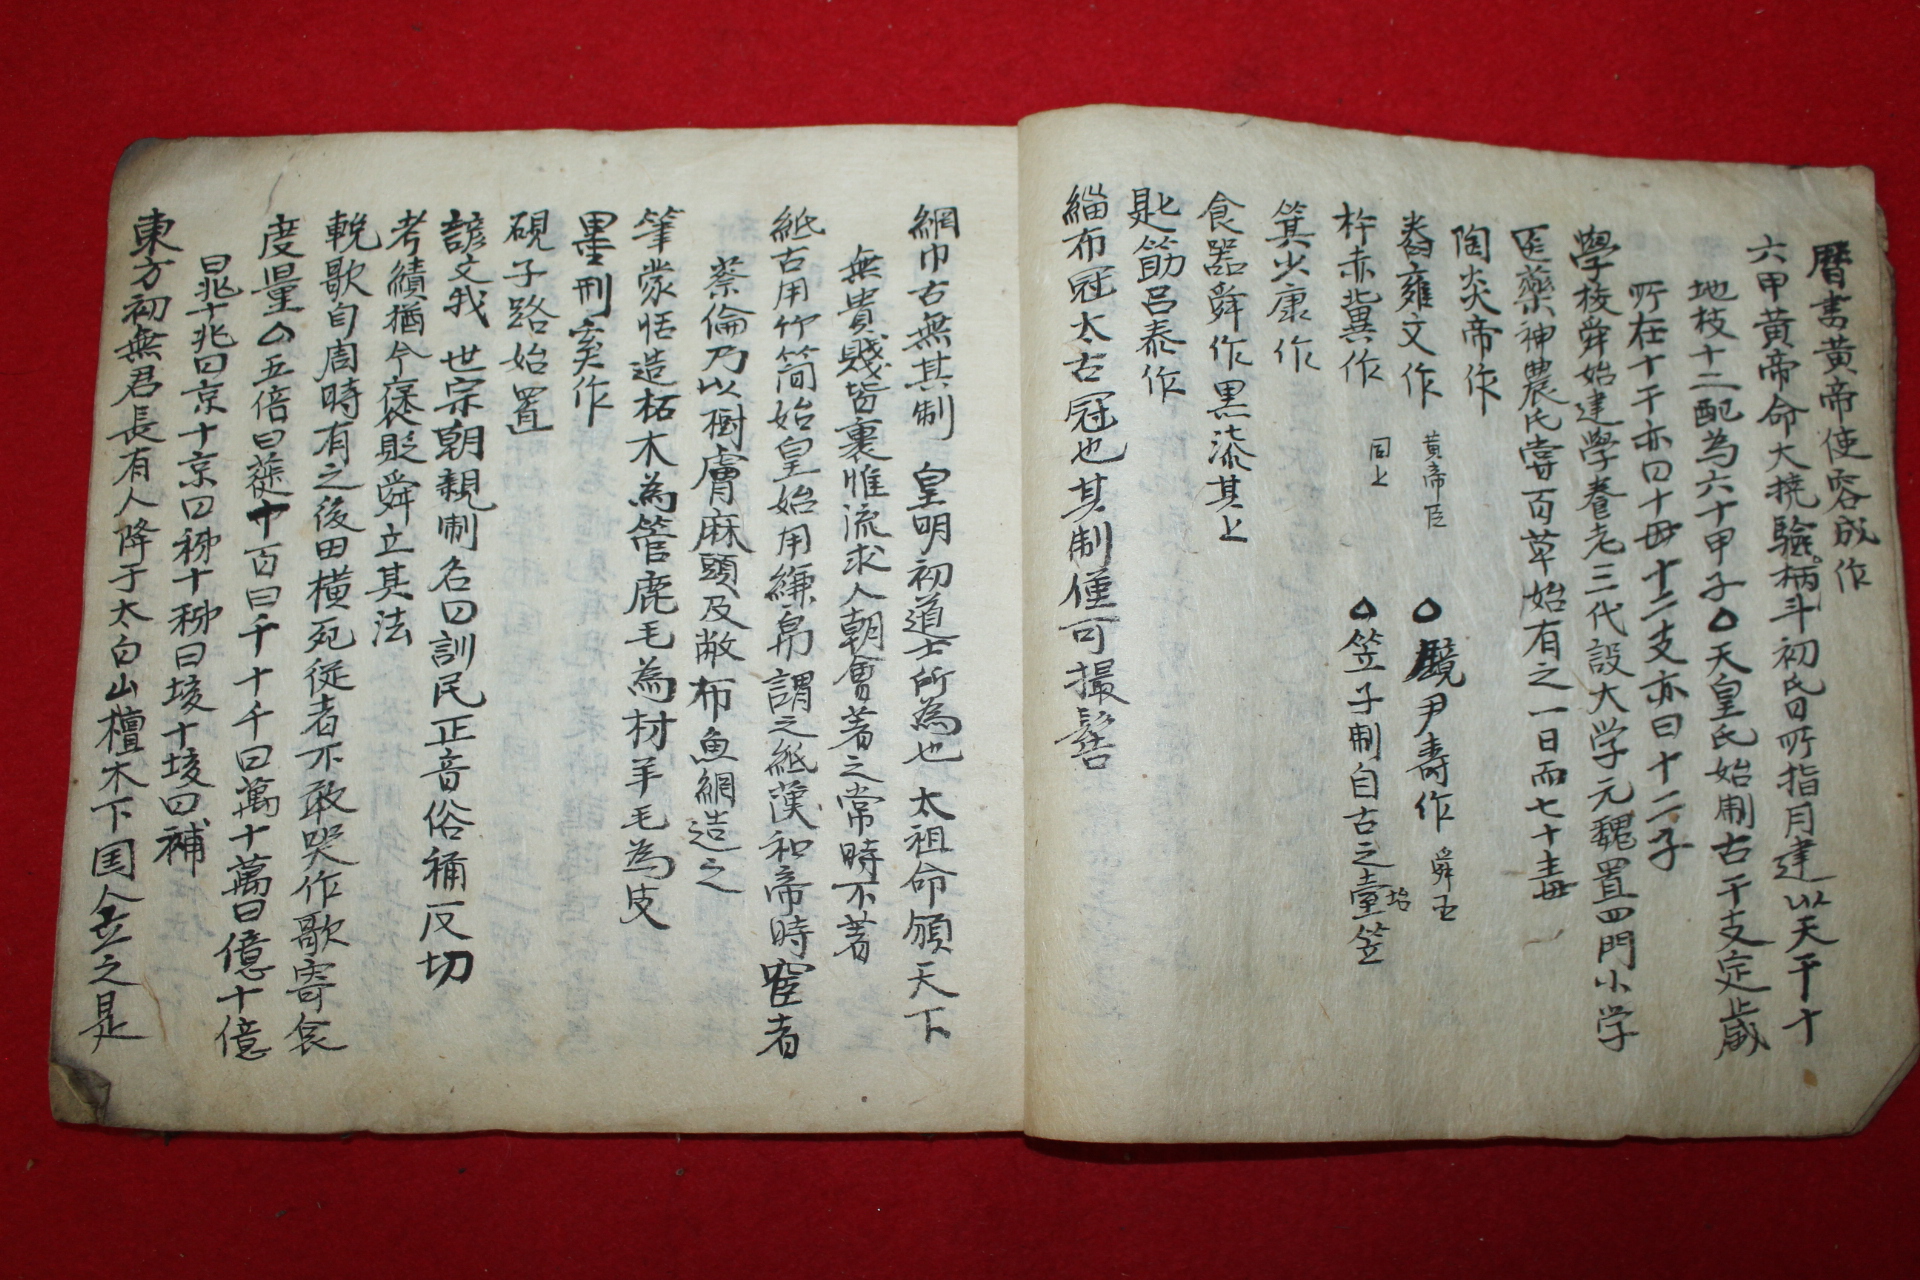 曆書黃帝使容成作
六甲黃帝命大撓驗柄斗初昏所指月建以天干十
地枝十二配為六十甲子○天皇氏始制古干支定歲
所在十干亦曰十母十二支亦曰十二子
學校舜始建學養老三代設大学元魏置四門小学
医藥神農氏嘗百草始有之一日而七十毒
陶炎帝作
舂雍文作 黃帝臣 ○ 尹壽作 舜臣
杵赤冀作 同上 ○笠子制自古之臺笠
箕少康作
食器舜作黑漆其上
匙筯呂泰作
緇布冠太古冠也其制僅可撮髻
網巾古無其制 皇明初道士所為也太祖命頒天下
無貴賤皆裹惟流求人朝會著之常時不著
紙古用竹簡始皇始用縑帛謂之紙漢和帝時宦者
蔡倫乃以樹膚麻頭及敝布魚網造之
筆蒙恬造柘木為管鹿毛為材羊毛為皮
墨刑夷作
硯子路始置
諺文我 世宗朝親制名曰訓民正音俗稱反切
考績猶今褒貶舜立其法
輓歌自周時有之後田橫死從者不敢哭作歌寄哀
度量○五倍曰蓰十百曰千十千曰萬十萬曰億十億
曰兆十兆曰京十京曰秭十秭曰垓十垓曰補
東方初無君長有人降于太白山檀木下国人立之是